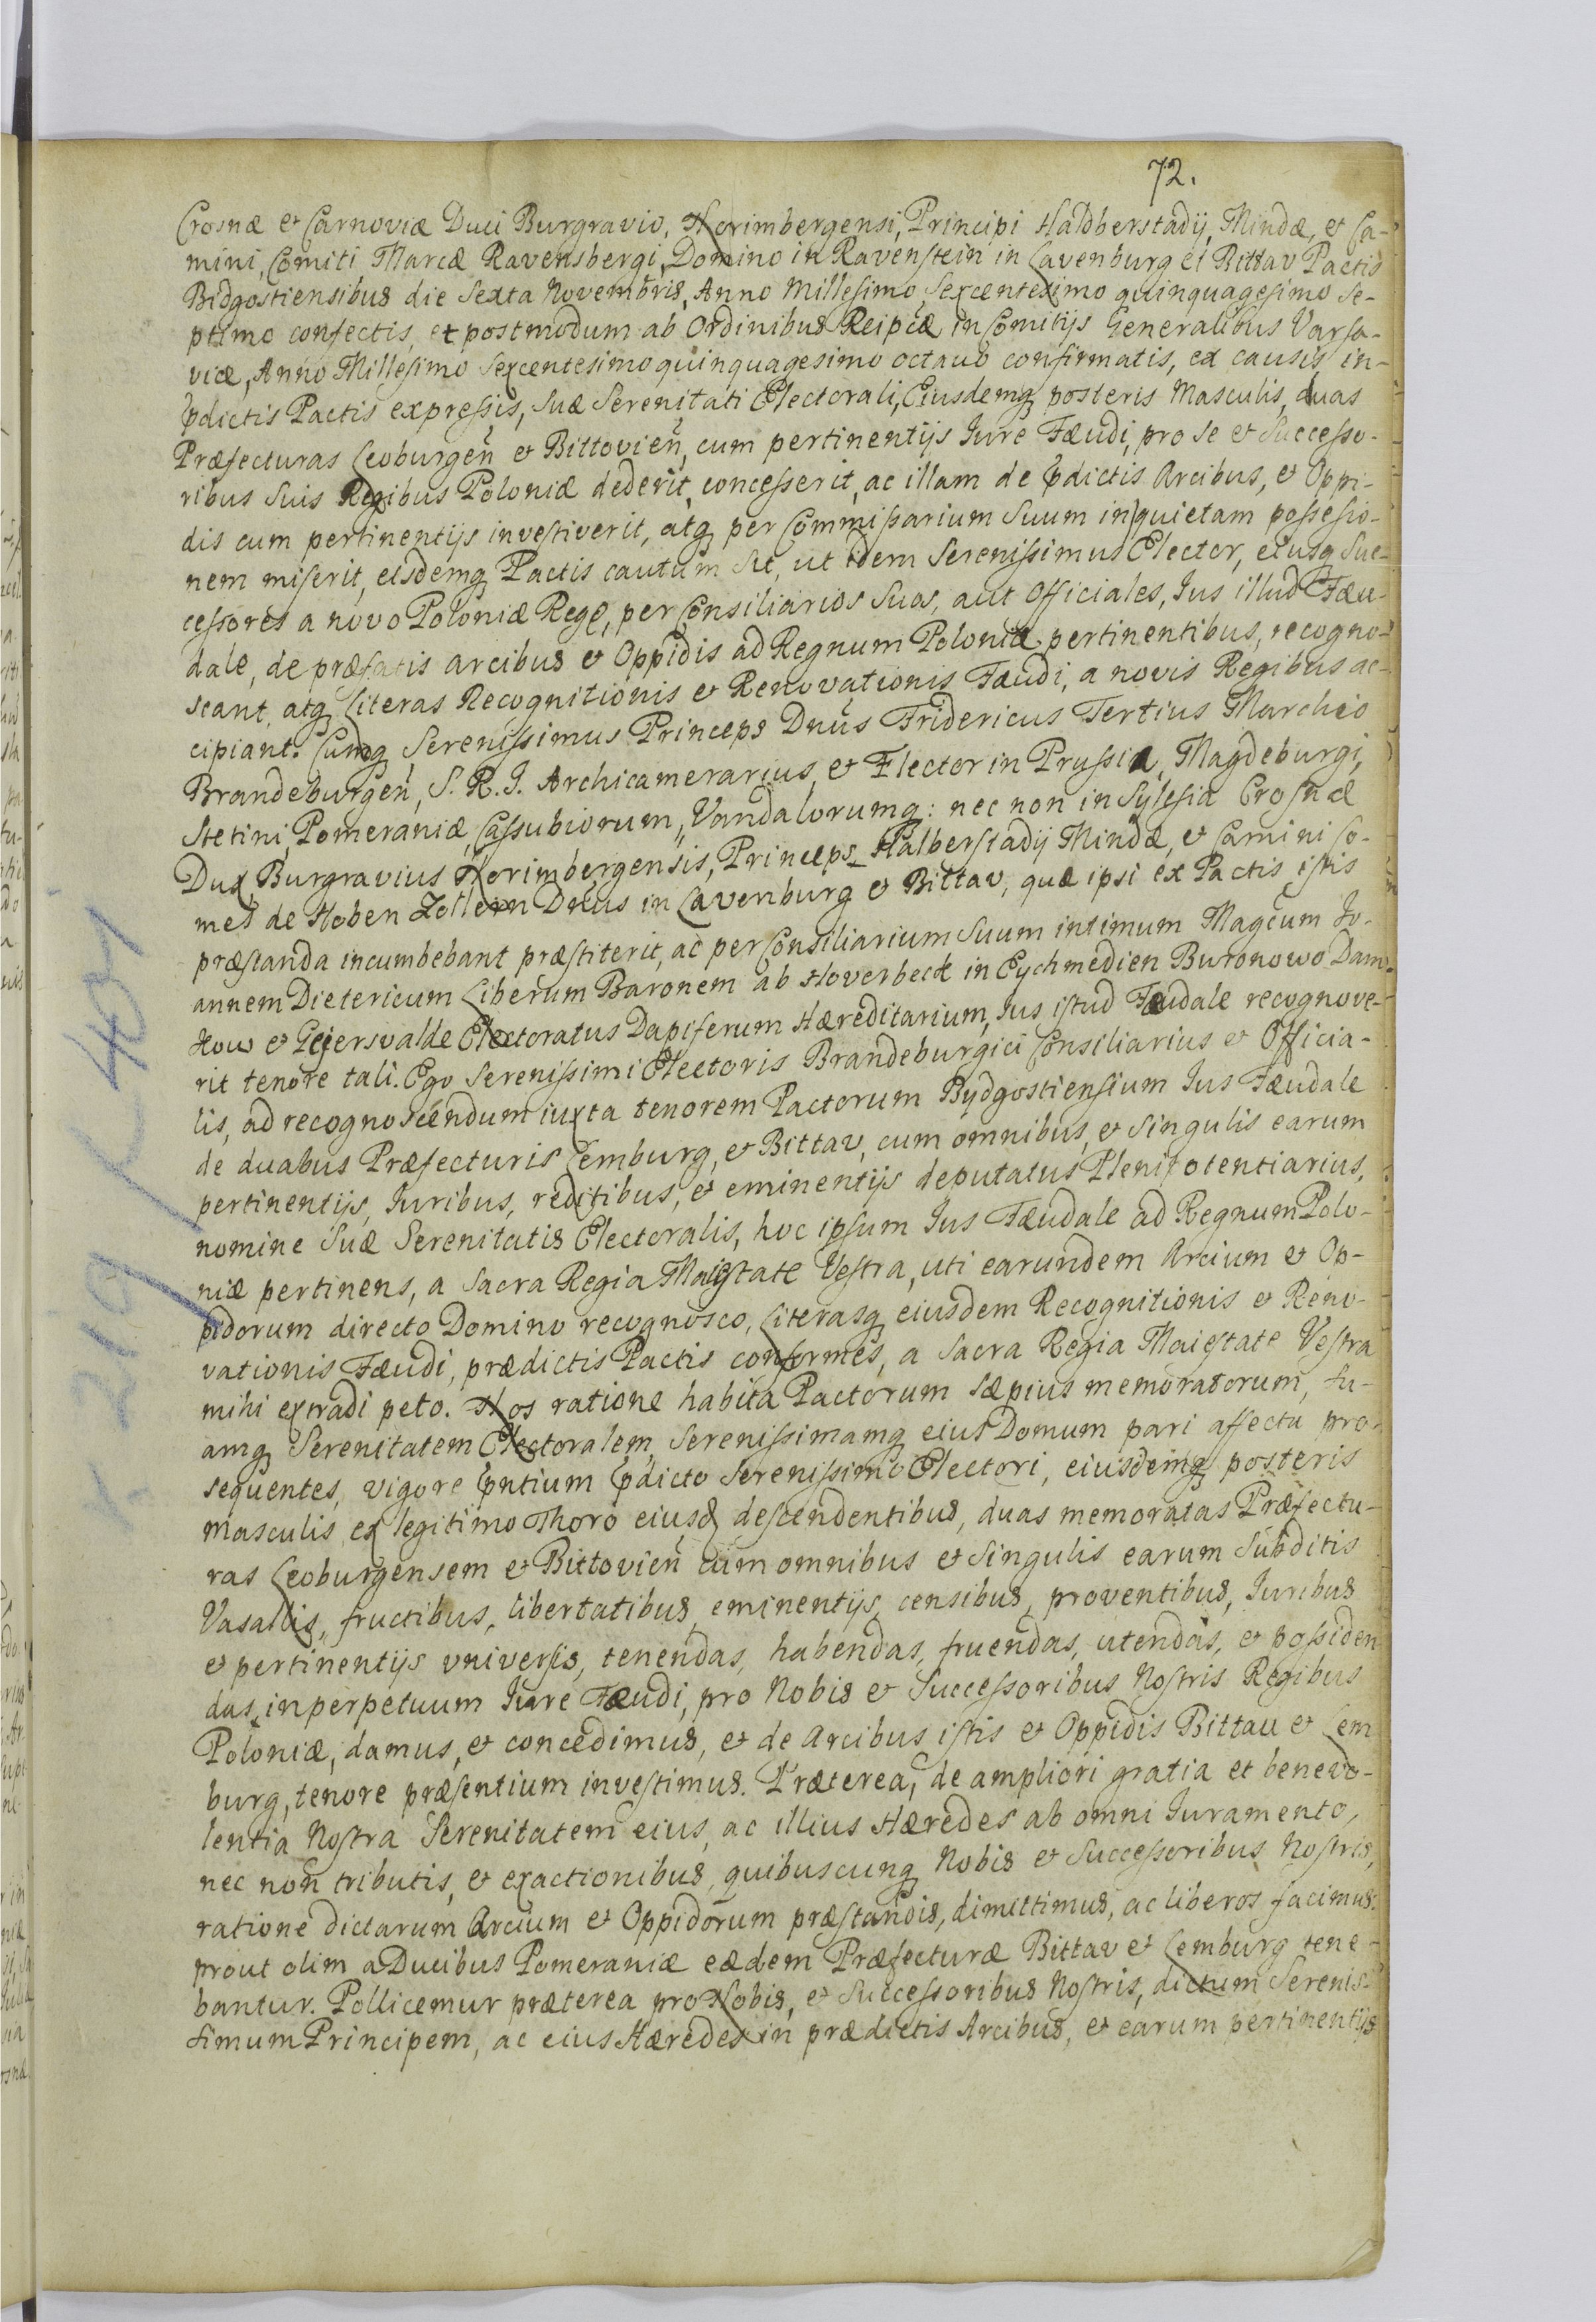 72.
Crosnæ et Carnoviæ Duci Burgravio, Norimbergensi, Principi Haldberstadij, Mindæ, et Ca-
mini, Comiti Marcæ Ravensbergi, Domino in Ravenstein in Lavenburg et Bittav Pactis
Bidgostiensibus die Sexta Novembris, Anno Millesimo Sexcentesimo quinquagesimo Se-
ptimo confectis, et postmodum ab Ordinibus Reipcæ in Comitijs Generalibus Varsa-
viæ, Anno Millesimo Sexcentesimo quinquagesimo octavo confirmatis, ex causis in-
p̄dictis Pactis expressis, Suæ Serenitati Electorali, Eiusdemq posteris Masculis, duas
Præfecturas Leoburgeñ et Bittovieñ, cum pertinentijs Jure Fæudi, pro Se et Successo-
ribus Suis Regibus Poloniæ dederit, concesserit, ac illam de p̄dictis Arcibus, et Oppi-
dis cum pertinentijs investiverit, atq per Commissarium Suum in quietam possessio-
nem miserit, eisdemq Pactis cautum sit, ut idem Serenissimus Elector, eiusq Suc-
cessores a novo Poloniæ Rege, per Consiliarios Suos, aut Officiales, Jus illud Fæu-
dale, de præfatis Arcibus et Oppidis ad Regnum Poloniæ pertinentibus, recogno-
scant, atq Literas Recognitionis et Renovationis Fæudi, a novis Regibus ac-
cipiant. Cumq Serenissimus Princeps Dnus Fridericus Tertius Marchio
Brandeburgeñ, S. R. I. Archicamerarius, et Elector in Prussia, Magdeburgi,
Stetini, Pomeraniæ, Cassubiorum, Vandalorumq: nec non in Sylesia Crosnæ
Dux Burgravius Norimbergensis, Princeps Halberstadij Mindæ, et Camini Co-
mes de Hohen Zollern Dnus in Lavenburg et Bittav, quæ ipsi ex Pactis istis
præstanda incumbebant præstiterit, ac per Consiliarium Suum intimum Magcum Jo-
annem Dietericum Liberum Baronem ab Hoverbeck in Eychmedien Buronowo Dam-
Kow et Geyersvalde Electoratus Dapiferum Hæreditarium, Jus istud Fæudale recognove-
rit tenore tali. Ego Serenissimi Electoris Brandeburgici Consiliarius et Officia-
lis, ad recognoscendum iuxta tenorem Pactorum Bydgostiensium Jus Fæudale
de duabus Præfecturis Lemburg, et Bittav, cum omnibus, et Singulis earum
pertinentijs, Juribus, reditibus, et eminentijs deputatus Plenipotentiarius,
nomine Suæ Serenitatis Electoralis, hoc ipsum Jus Fæudale ad Regnum Polo-
niæ pertinens, a Sacra Regia Maiestate Vestra, uti earundem Arcium et Op-
pidorum directo Domino recognosco, Literasq eiusdem Recognitionis et Reno-
vationis Fæudi, prædictis Pactis conformes, a Sacra Regia Maiestate Vestra
mihi extradi peto. Nos ratione habita Pactorum Sæpius memoratorum, Su-
amq Serenitatem Electoralem, Serenissimamq eius Domum pari affectu pro-
sequentes, vigore p̄ntium p̄dicto Serenissimo Electori, eiusdemq posteris
masculis, ex legitimo Thoro eiusq descendentibus, duas memoratas Præfectu-
ras Leoburgensem et Bittovieñ cum omnibus et Singulis earum Subditis
Vasallis, fructibus, libertatibus, eminentijs, censibus, proventibus, Juribus
et pertinentijs universis, tenendas, habendas, fruendas, utendas, et possiden
das, in perpetuum Jure Fæudi, pro Nobis et Successoribus Nostris Regibus
Poloniæ, damus, et concedimus, et de Arcibus istis et Oppidis Bittau et Lem
burg, tenore præsentium investimus. Præterea, de ampliori gratia et benevo-
lentia Nostra Serenitatem eius, ac illius Hæredes ab omni Juramento,
nec non tributis, et exactionibus, quibuscunq Nobis et Successoribus Nostris,
ratione dictarum Arcium et Oppidorum præstandis, dimittimus, ac liberos facimus.
prout olim a Ducibus Pomeraniæ eædem Præfecturæ Bittav et Lemburg tene-
bantur. Pollicemur præterea pro Nobis, et Successoribus Nostris, dictum Serenis-
simum Principem, ac eius Hæredes in prædictis Arcibus, et earum pertinentijs